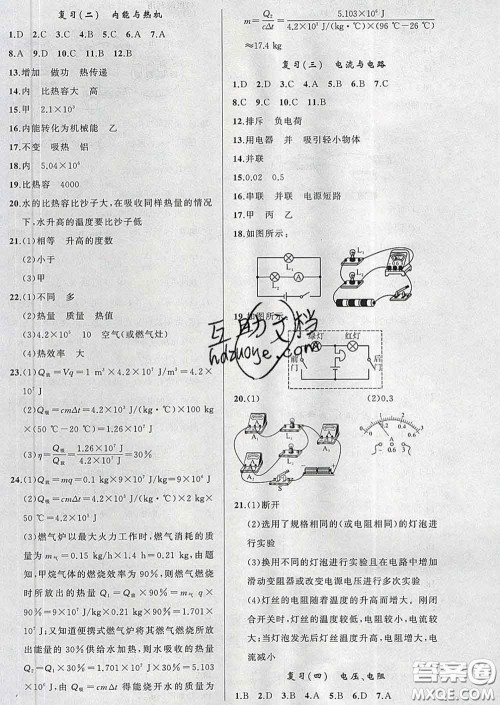 复习(二) 内能与热机
1.D 2.C 3.C 4.B 5.C 6.A 7.A
8.A 9.C 10.C 11.B 12.B
13.增加 做功 热传递
14.内 比热容大 高
15.甲 2.1×10³
16.内能转化为机械能 乙
17.不变 吸热 铝
18.内 5.04×10⁴
19.比热容 4000
20.水的比热容比沙子大,在吸收同样热量的情况
下,水升高的温度要比沙子低
21.(1)相等 升高的度数
(2)小于
(3)甲
22.(1)不同 多
(2)热量 质量 热值
(3)4.2×10⁵ 10 空气(或燃灶)
(4)热效率 大
23.(1)Q放=Vq=1 m³×4.2×10⁷ J/m³=4.2×
10⁷ J
(2)Q吸=cmΔt=4.2×10³ J/(kg·℃)×100 kg
×(50 ℃-20 ℃)=1.26×10⁷ J
(3)η=Q吸/Q放=1.26×10⁷ J/4.2×10⁷ J=30%
24.(1)Q放=mq=0.1 kg×9×10⁷ J/kg=9×10⁶ J
(2)Q吸=cmΔt=4.2×10³ J/(kg·℃)×2 kg×
50 ℃=4.2×10⁵ J
(3)燃气炉以最大火力工作时,燃气消耗的质
量为m气=0.15 kg/h×1.4 h=0.21 kg,由题
知,甲烷气体的燃烧效率为90%,则燃气燃烧
时所放出的热量为 Q1=Q放×90%=m气q×
90%=0.21 kg×9×10⁷ J/kg×90%=1.701×
10⁷ J;又知道便携式燃气炉将其燃气燃烧所放
出能量的30%供给水加热,则水吸收的热量
Q2=Q1×30%=1.701×10⁷ J×30%=5.103
×10⁶ J,由Q吸=cmΔt得能使烧开水的质量为
m=Q2/cΔt=5.103×10⁶ J/4.2×10³ J/(kg·℃)×(96 ℃-26 ℃)
≈17.4 kg
复习(三) 电流与电路
1.D 2.D 3.C 4.D 5.B 6.D 7.A
8.C 9.C 10.C 11.B
12.排斥 负电荷
13.用电器 并 吸引轻小物体
14.并联
15.0.02 0.5
16.串联 并联 电源短路
17.甲 丙 乙
18.如图所示:
19.如图所示:
20.(1) (2)0.3
21.(1)断开
(2)选用了规格相同的(或电阻相同的)灯泡进
行实验
(3)换用不同的灯泡进行实验且在电路中增加
滑动变阻器或改变电源电压进行多次实验
(4)灯丝的电阻随着温度的升高而增大,刚闭
合开关时,灯丝温度较低,电阻较小,电流较
大;当灯泡发光后灯丝温度升高,电阻增大,电
流减小
复习(四) 电压、电阻
1.B 2.D 3.A 4.B 5.D 6.B 7.A
互助文档
hdzuoye.com
答案圈
MXQE.COM